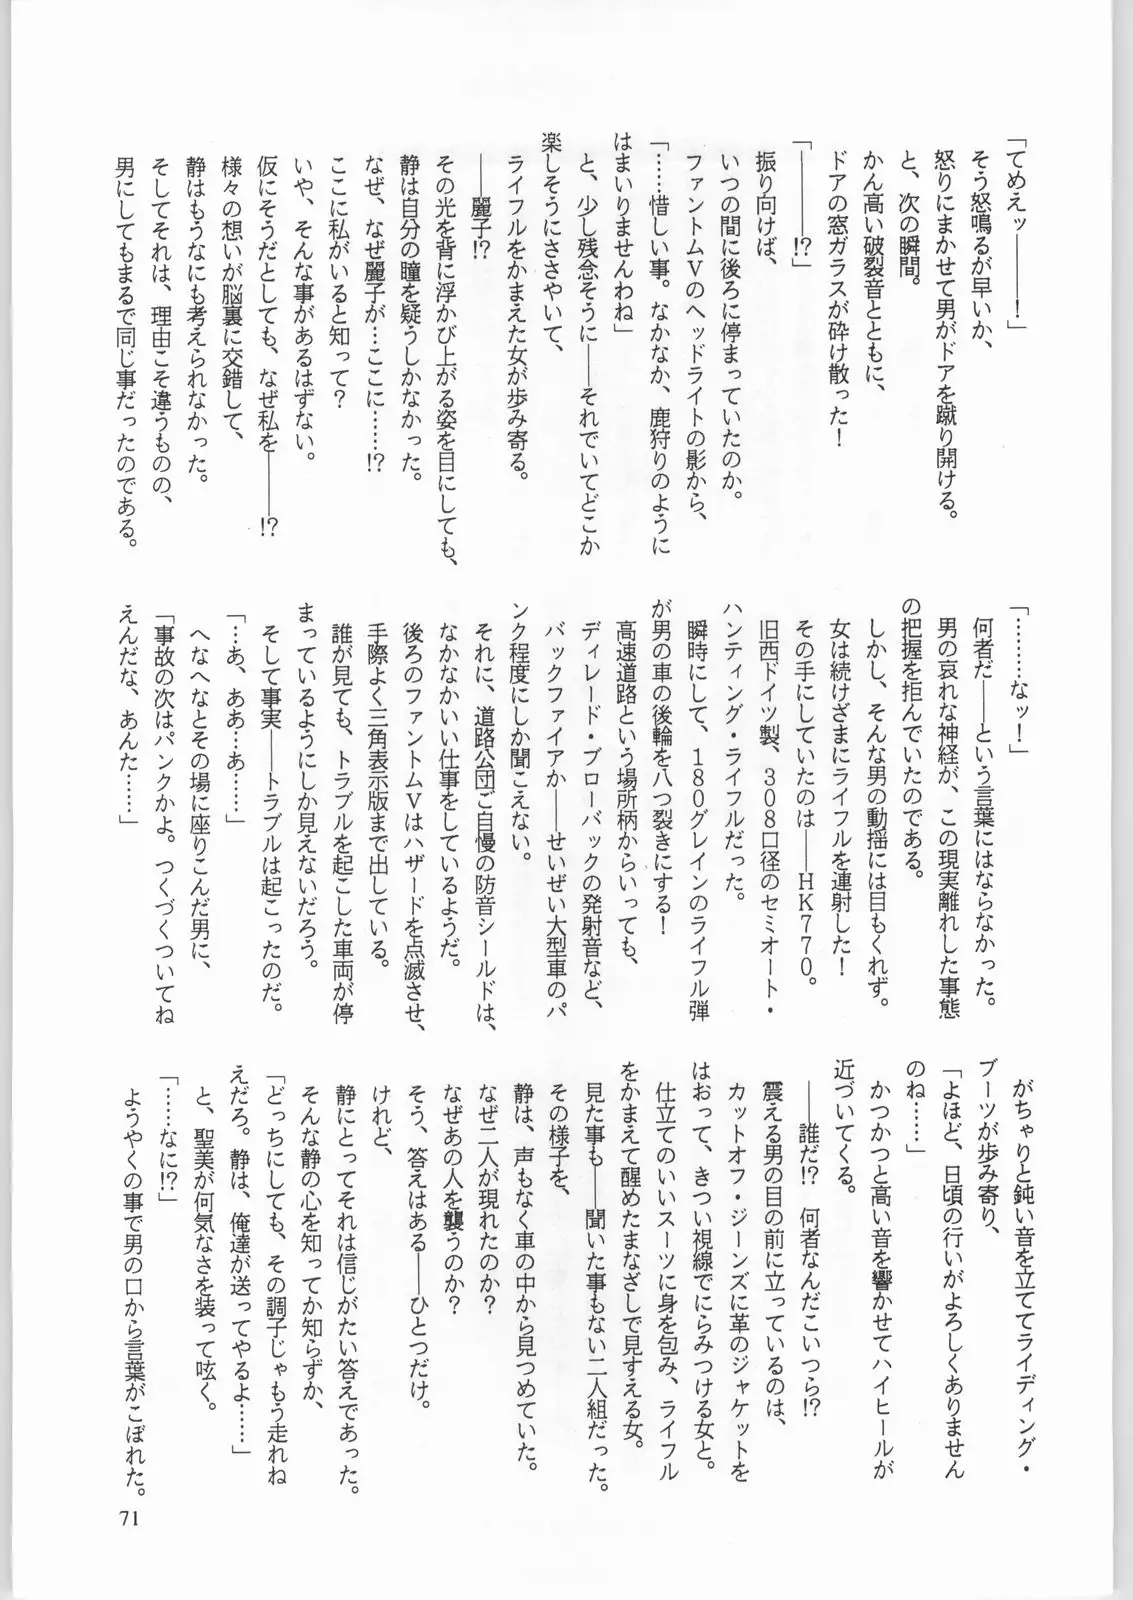 「てめえッ――――！」
そう怒鳴るが早いか、
怒りにまかせて男がドアを蹴り開ける。
と、次の瞬間。
かん高い破裂音とともに、
ドアの窓ガラスが砕け散った！
「――――⁉」
振り向けば、
いつの間に後ろに停まっていたのか。
ファントムVのヘッドライトの影から、
「……惜しい事。なかなか、鹿狩りのように
はまいりませんわね」
と、少し残念そうに――それでいてどこか
楽しそうにささやいて、
ライフルをかまえた女が歩み寄る。
――麗子⁉
その光を背に浮かび上がる姿を目にしても、
静は自分の瞳を疑うしかなかった。
なぜ、なぜ麗子が…ここに……⁉
ここに私がいると知って？
いや、そんな事があるはずない。
仮にそうだとしても、なぜ私を――――⁉
様々の想いが脳裏に交錯して、
静はもうなにも考えられなかった。
そしてそれは、理由こそ違うものの、
男にしてもまるで同じ事だったのである。
「………なッ！」
何者だ――という言葉にはならなかった。
男の哀れな神経が、この現実離れした事態
の把握を拒んでいたのである。
しかし、そんな男の動揺には目もくれず。
女は続けざまにライフルを連射した！
その手にしていたのは――HK770。
旧西ドイツ製、308口径のセミオート・
ハンティング・ライフルだった。
瞬時にして、180グレインのライフル弾
が男の車の後輪を八つ裂きにする！
高速道路という場所柄からいっても、
ディレード・ブローバックの発射音など、
バックファイアか――せいぜい大型車のパ
ンク程度にしか聞こえない。
それに、道路公団ご自慢の防音シールドは、
なかなかいい仕事をしているようだ。
後ろのファントムVはハザードを点滅させ、
手際よく三角表示版まで出している。
誰が見ても、トラブルを起こした車両が停
まっているようにしか見えないだろう。
そして事実――トラブルは起こったのだ。
「…あ、ああ…あ……」
へなへなとその場に座りこんだ男に、
「事故の次はパンクかよ。つくづくついてね
えんだな、あんた……」
がちゃりと鈍い音を立ててライディング・
ブーツが歩み寄り、
「よほど、日頃の行いがよろしくありません
のね……」
かつかつと高い音を響かせてハイヒールが
近づいてくる。
――誰だ⁉　何者なんだこいつら⁉
震える男の目の前に立っているのは、
カットオフ・ジーンズに革のジャケットを
はおって、きつい視線でにらみつける女と。
仕立てのいいスーツに身を包み、ライフル
をかまえて醒めたまなざしで見すえる女。
見た事も――聞いた事もない二人組だった。
その様子を、
静は、声もなく車の中から見つめていた。
なぜ二人が現れたのか？
なぜあの人を襲うのか？
そう、答えはある――ひとつだけ。
けれど、
静にとってそれは信じがたい答えであった。
そんな静の心を知ってか知らずか、
「どっちにしても、その調子じゃもう走れね
えだろ。静は、俺達が送ってやるよ……」
と、聖美が何気なさを装って呟く。
「……なに⁉」
ようやくの事で男の口から言葉がこぼれた。
71